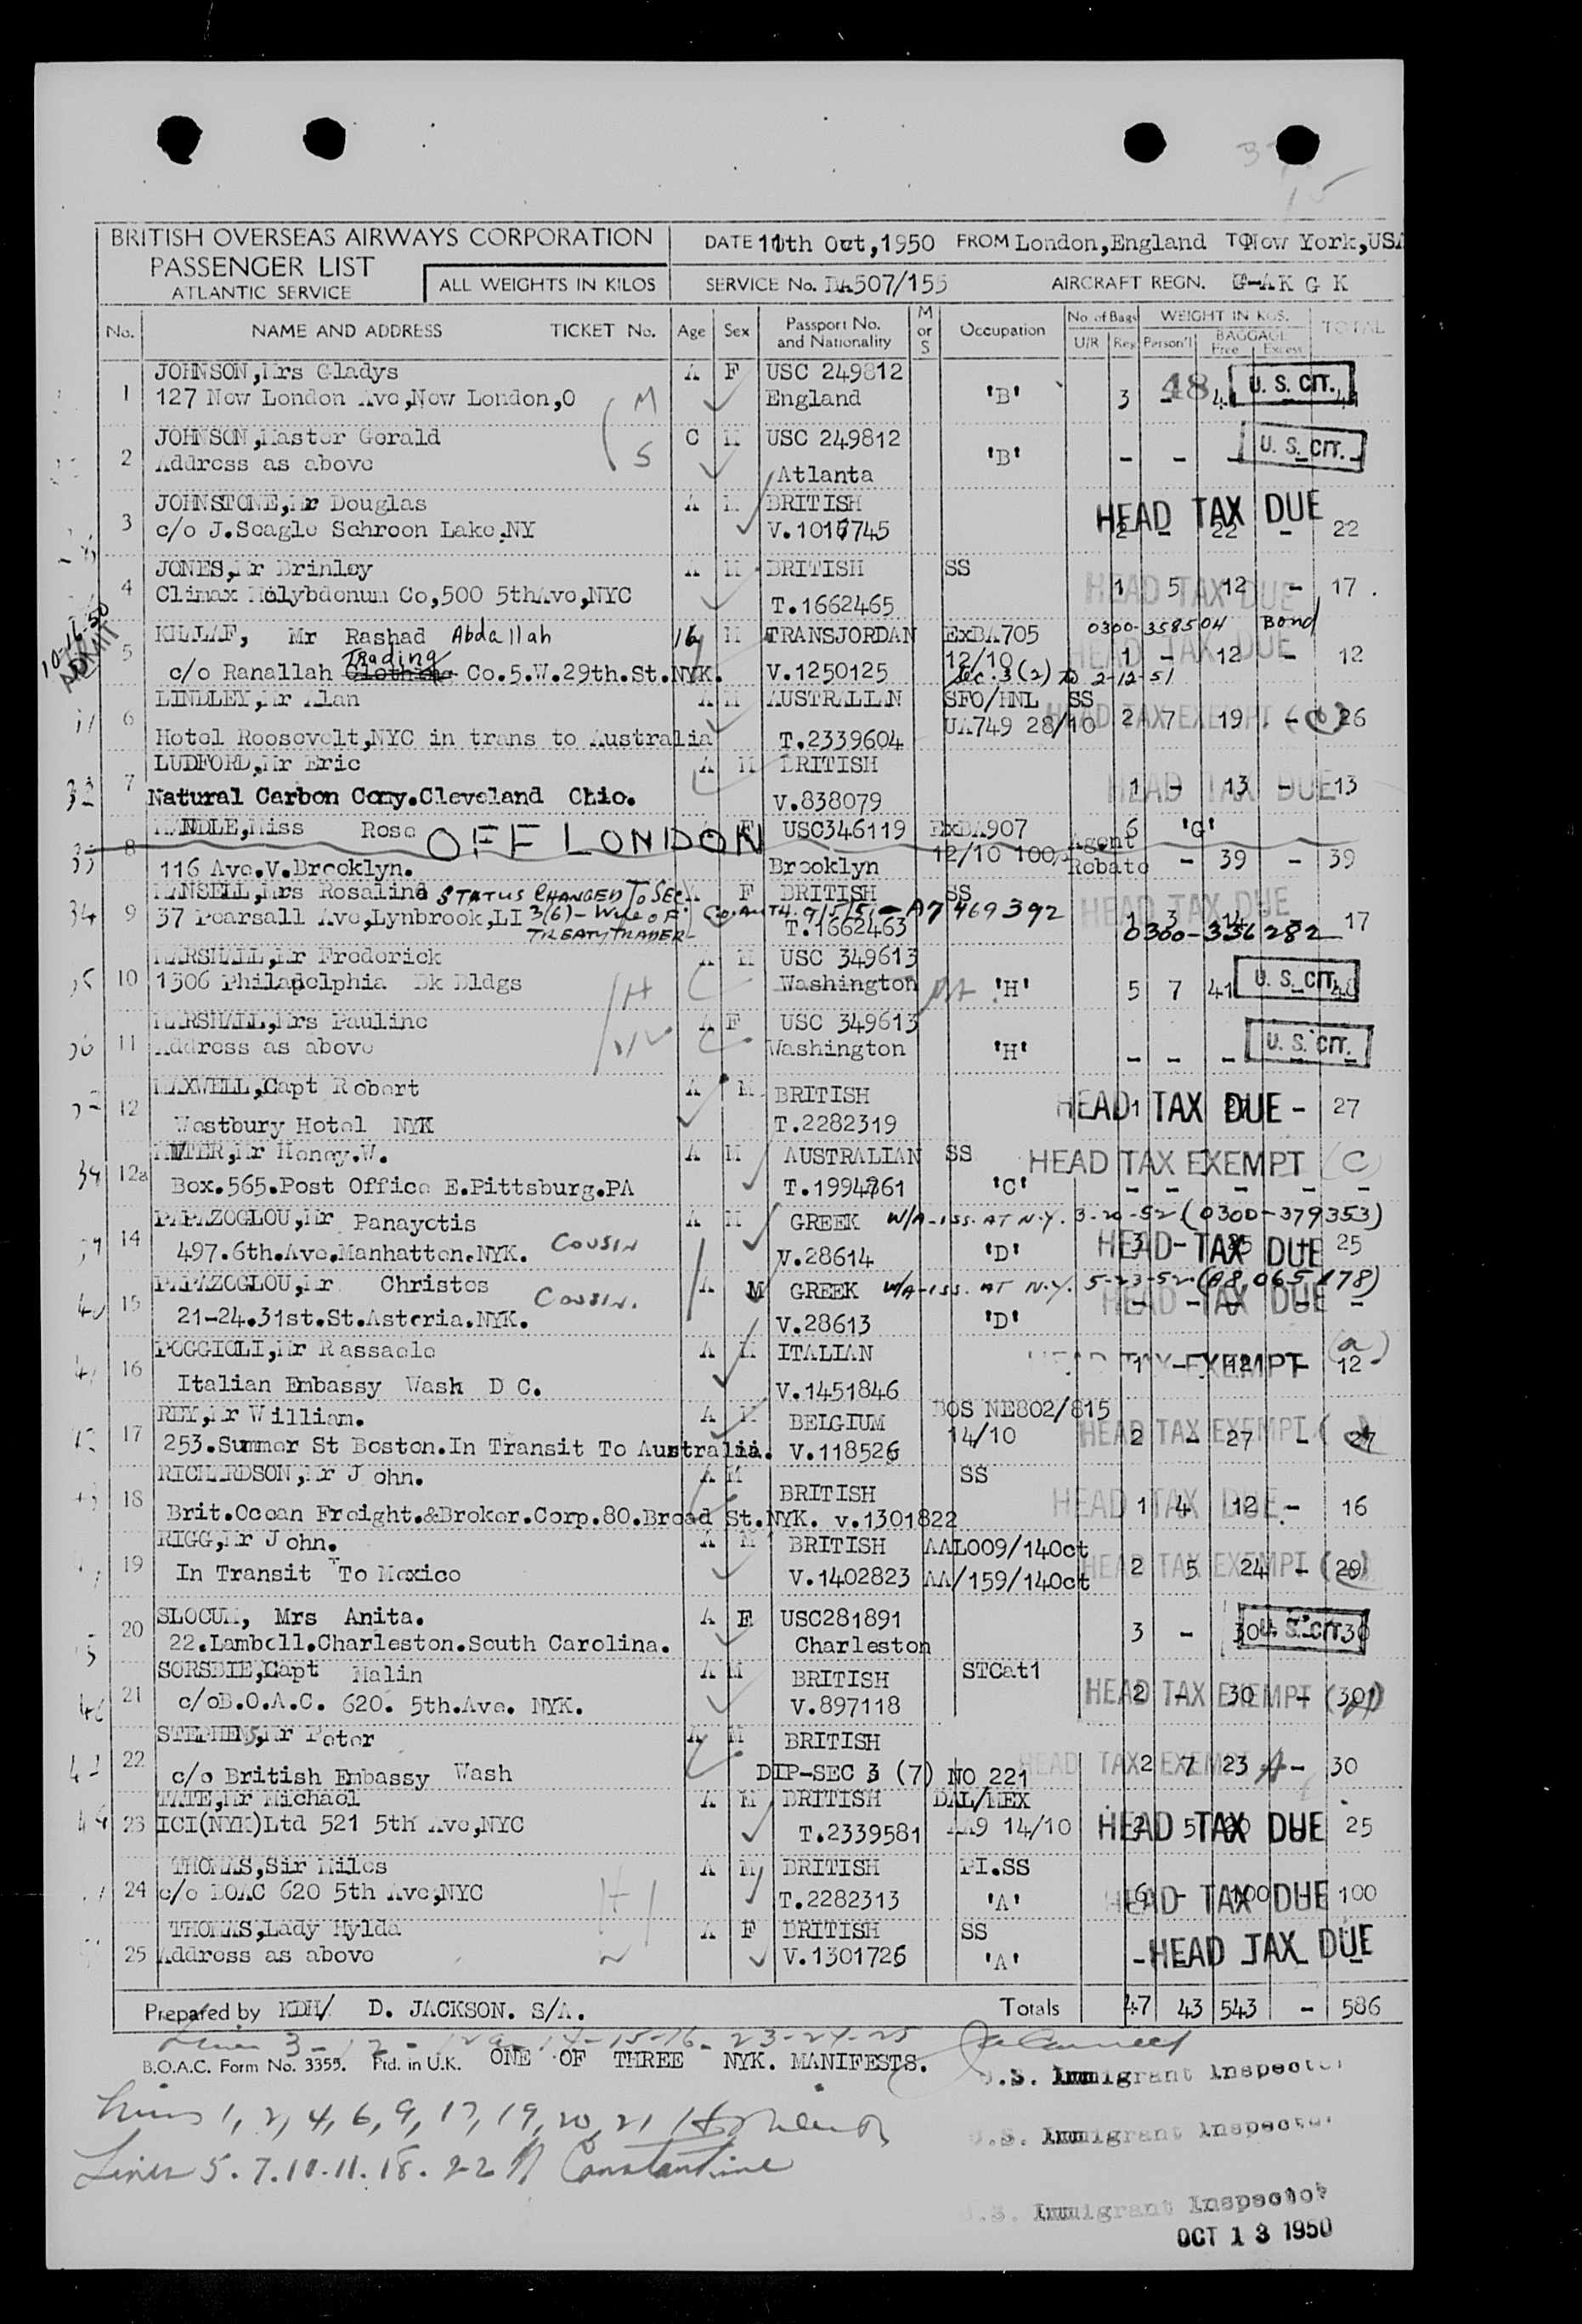 BRITISH OVERSEAS AIRWAYS CORPORATION
PASSENGER LIST
ATLANTIC SERVICE
ALL WEIGHTS IN KILOS
DATE 11th Oct,1950 FROM London,England TO New York,USA
SERVICE No. BA507/155 AIRCRAFT REGN. G-AKGK
No. NAME AND ADDRESS TICKET No. Age Sex Passport No. and Nationality M or S Occupation No. of Bags U/R Reg WEIGHT IN KGS. Person'l BAGGAGE Free Excess TOTAL
JOHNSON,Mrs Gladys A F USC 249812
1 127 New London Ave,New London,O M England 'B' 3 - U. S. CIT.
JOHNSON,Master Gerald C M USC 249812
2 Address as above S Atlanta 'B' - - U. S. CIT.
JOHNSTONE,Mr Douglas A M BRITISH HEAD TAX DUE
3 c/o J.Seagle Schroon Lake.NY V.1016745 2 - 22 - 22
JONES,Mr Brinley A M BRITISH SS HEAD TAX DUE
4 Climax Molybdenum Co,500 5thAve,NYC T.1662465 1 5 12 - 17
10-16-50 ADMIT
KILLAF, Mr Rashad Abdallah 16 M TRANSJORDAN ExBA705 0300-358504 Bond
5 c/o Ranallah Clothing Trading Co.5.W.29th.St.NYK. V.1250125 12/10 HEAD TAX DUE 1 - 12 - 12
Sec.3(2) to 2-12-51
LINDLEY,Mr Alan A M AUSTRALIAN SFO/HNL SS
6 UA749 28/10 HEAD TAX EXEMPT 2 7 19 - 26
Hotel Roosevelt,NYC in trans to Australia T.2339604
LUDFORD,Mr Eric A M BRITISH HEAD TAX DUE
7 Natural Carbon Comy.Cleveland Ohio. V.838079 1 - 13 - 13
MANDLE,Miss Rose OFF LONDON F USC346119 ExBA907 6 'G'
8 116 Ave.V.Brooklyn. Brooklyn 12/10 Agent Rebate - 39 - 39
MANSELL,Mrs Rosalind STATUS CHANGED TO SEC. F BRITISH SS HEAD TAX DUE
9 37 Pearsall Ave,Lynbrook,LI 3(6)- Wife of TREATY TRADER- Co. AUTH. 9/5/51-A7969392 T.1662463 1 3 14 - 17
0300-336282
MARSHALL,Mr Frederick A M USC 349613
10 1306 Philadelphia Bk Bldgs H Washington PA 'H' 5 7 41 U. S. CIT. 48
MARSHALL,Mrs Pauline A F USC 349613
11 Address as above W Washington 'H' - - - U. S. CIT.
MAXWELL,Capt Robert A M BRITISH
12 HEAD TAX DUE 1 - 27 - 27
Westbury Hotel NYK T.2282319
Mr Honey.W. A M AUSTRALIAN SS HEAD TAX EXEMPT (C)
12a Box.565.Post Office E.Pittsburg.PA T.1994761 'C' - - - - -
PAPAZOGLOU,Mr Panayotis A M GREEK W/A-iss. AT N.Y. 3-20-52 (0300-379353)
14 497.6th.Ave.Manhatten.NYK. COUSIN V.28614 'D' HEAD TAX DUE 3 - 25 25
PAPAZOGLOU,Mr Christos A M GREEK W/A-iss. AT N.Y. 5-23-52 (A8,065,178)
15 21-24.31st.St.Asteria.NYK. COUSIN. V.28613 'D' HEAD TAX DUE - - - - -
POGGIOLI,Mr Rassaele A M ITALIAN (a)
16 Italian Embassy Wash D C. V.1451846 HEAD TAX EXEMPT 1 - 12 - 12
REY,Mr William. A M BELGIUM BOS NE802/815
17 253.Summer St Boston.In Transit To Australia. V.118526 14/10 HEAD TAX EXEMPT 2 - 27 - 27
RICHARDSON,Mr John. A M SS
18 BRITISH HEAD TAX DUE 1 4 12 - 16
Brit.Ocean Freight.&Broker.Corp.80.Broad St.NYK. v.1301822
RIGG,Mr John. A M BRITISH AAL009/14Oct
19 In Transit To Mexico V.1402823 AA/159/14Oct HEAD TAX EXEMPT 2 5 24 - 29
SLOCUM, Mrs Anita. A F USC281891
20 22.Lambell.Charleston.South Carolina. Charleston 3 - 30 U. S. CIT. 30
SORSBIE,Capt Malin A M BRITISH STCat1
21 c/oB.O.A.C. 620. 5th.Ave. NYK. V.897118 HEAD TAX EXEMPT 2 - 30 - 30
STEPHENS,Mr Peter A M BRITISH
22 c/o British Embassy Wash DIP-SEC 3 (7) NO 221 HEAD TAX EXEMPT A 2 7 23 - 30
TATE,Mr Michael A M BRITISH DAL/MEX
23 ICI(NYK)Ltd 521 5th Ave,NYC T.2339581 AA9 14/10 HEAD TAX DUE 2 5 20 25
THOMAS,Sir Miles A M BRITISH PI.SS
24 c/o BOAC 620 5th Ave,NYC H T.2282313 'A' HEAD TAX DUE 6 - 100 100
THOMAS,Lady Hylda A F BRITISH SS
25 Address as above V.1301726 'A' HEAD TAX DUE
Prepared by KDH/ D. JACKSON. S/A. Totals 47 43 543 - 586
Lines 3-12-12a-14-15-16-23-24-25
B.O.A.C. Form No. 3355. Ptd. in U.K. ONE OF THREE NYK. MANIFESTS.
U.S. Immigrant Inspector
Lines 1, 2, 4, 6, 9, 17, 19, 20, 21
U.S. Immigrant Inspector
Lines 5. 7. 10. 11. 18. 22 Constantine
U.S. Immigrant Inspector
OCT 13 1950